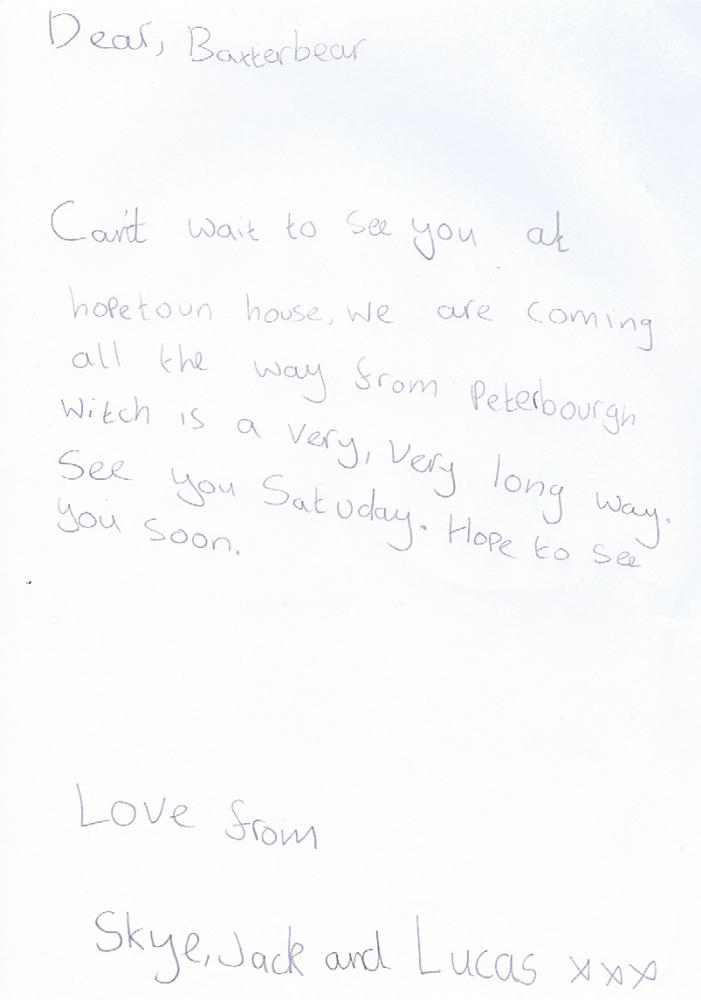 Dear, Baxterbear
Can't wait to see you at
hopetoun house, we are coming
all the way from Peterbourgh
witch is a very, very long way.
See you Satuday. Hope to see
you soon.
Love from
Skye, Jack and Lucas xxx